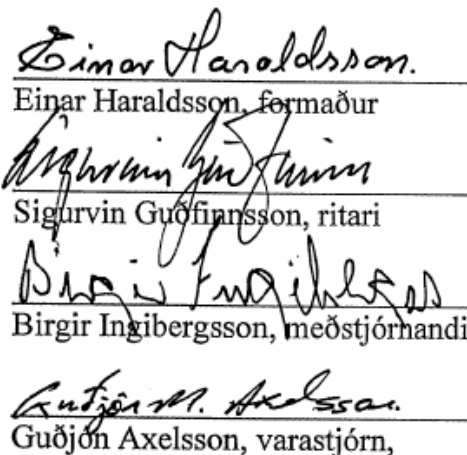 Einar Haraldsson.
Einar Haraldsson, formaður
Sigurvin Guðfinnsson
Sigurvin Guðfinnsson, ritari
Birgir Ingibergss
Birgir Ingibergsson, meðstjórnandi
Guðjón M. Axelsson.
Guðjón Axelsson, varastjórn,